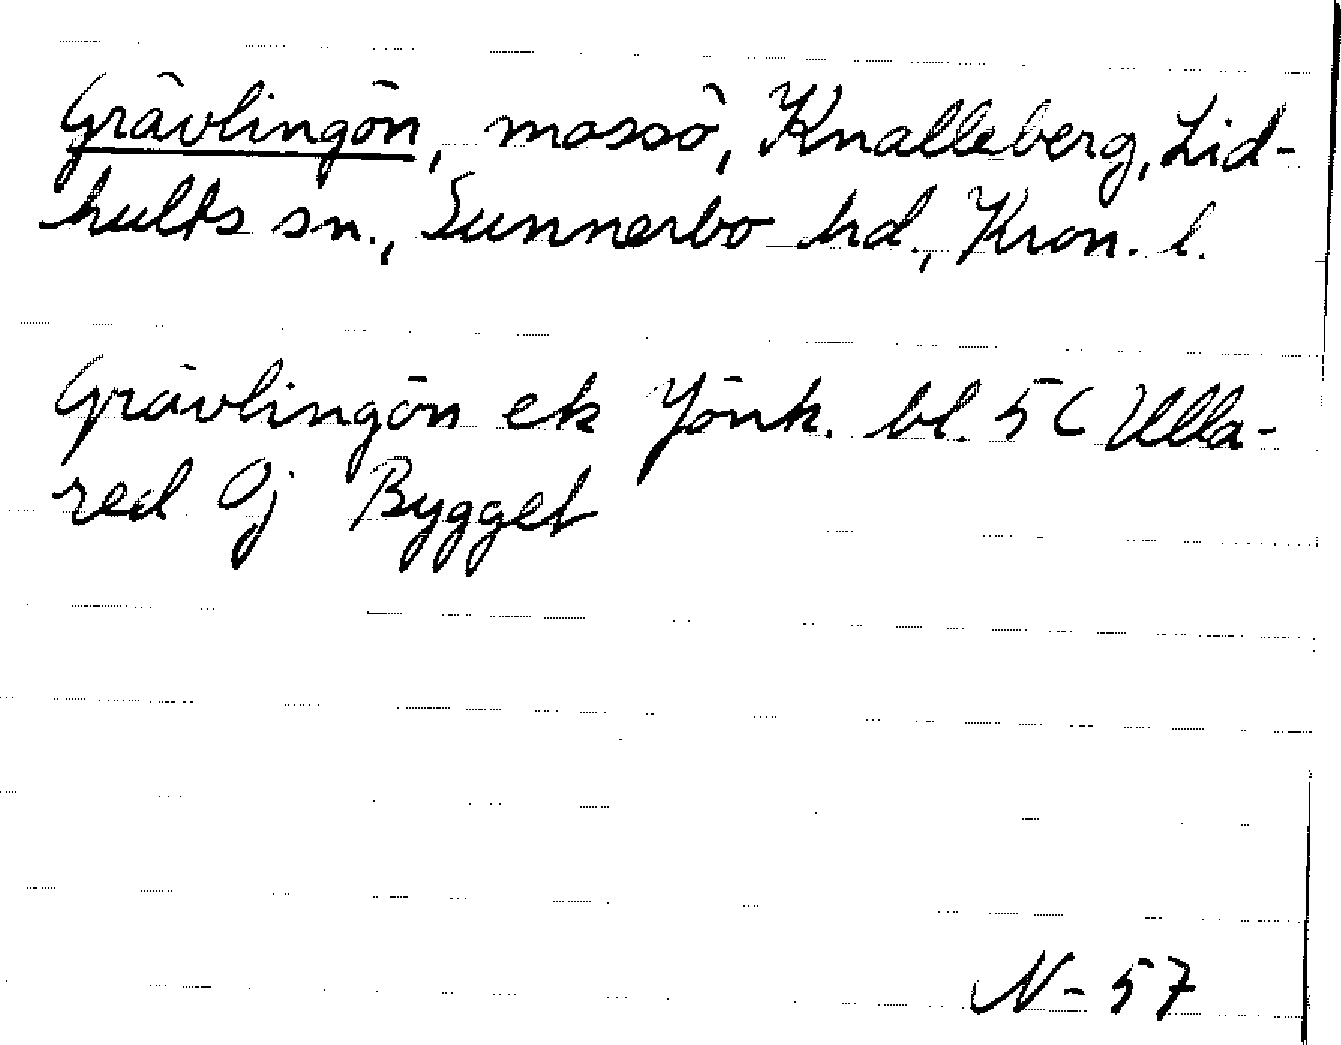 Grävlingön, mossö, Knalleberg, Lid-
hults sn., Sunnerbo hd., Kron. l.
Grävlingön ek Jönk. bl. 5C Ulla-
red 0j Bygget
N-57